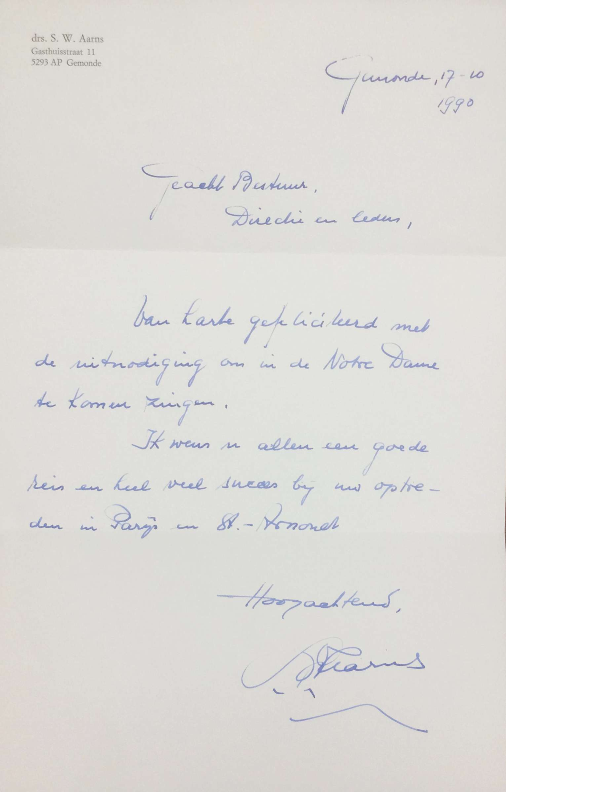 drs. S. W. Aarns
Gasthuisstraat 11
5293 AP Gemonde
Gemonde, 17-10
1990
Geacht Bestuur,
Directie en leden,
Van harte gefeliciteerd met
de uitnodiging om in de Notre Dame
te komen zingen.
Ik wens u allen een goede
reis en heel veel succes bij uw optre-
den in Parijs en St.-
Hoogachtend,
SWAarns